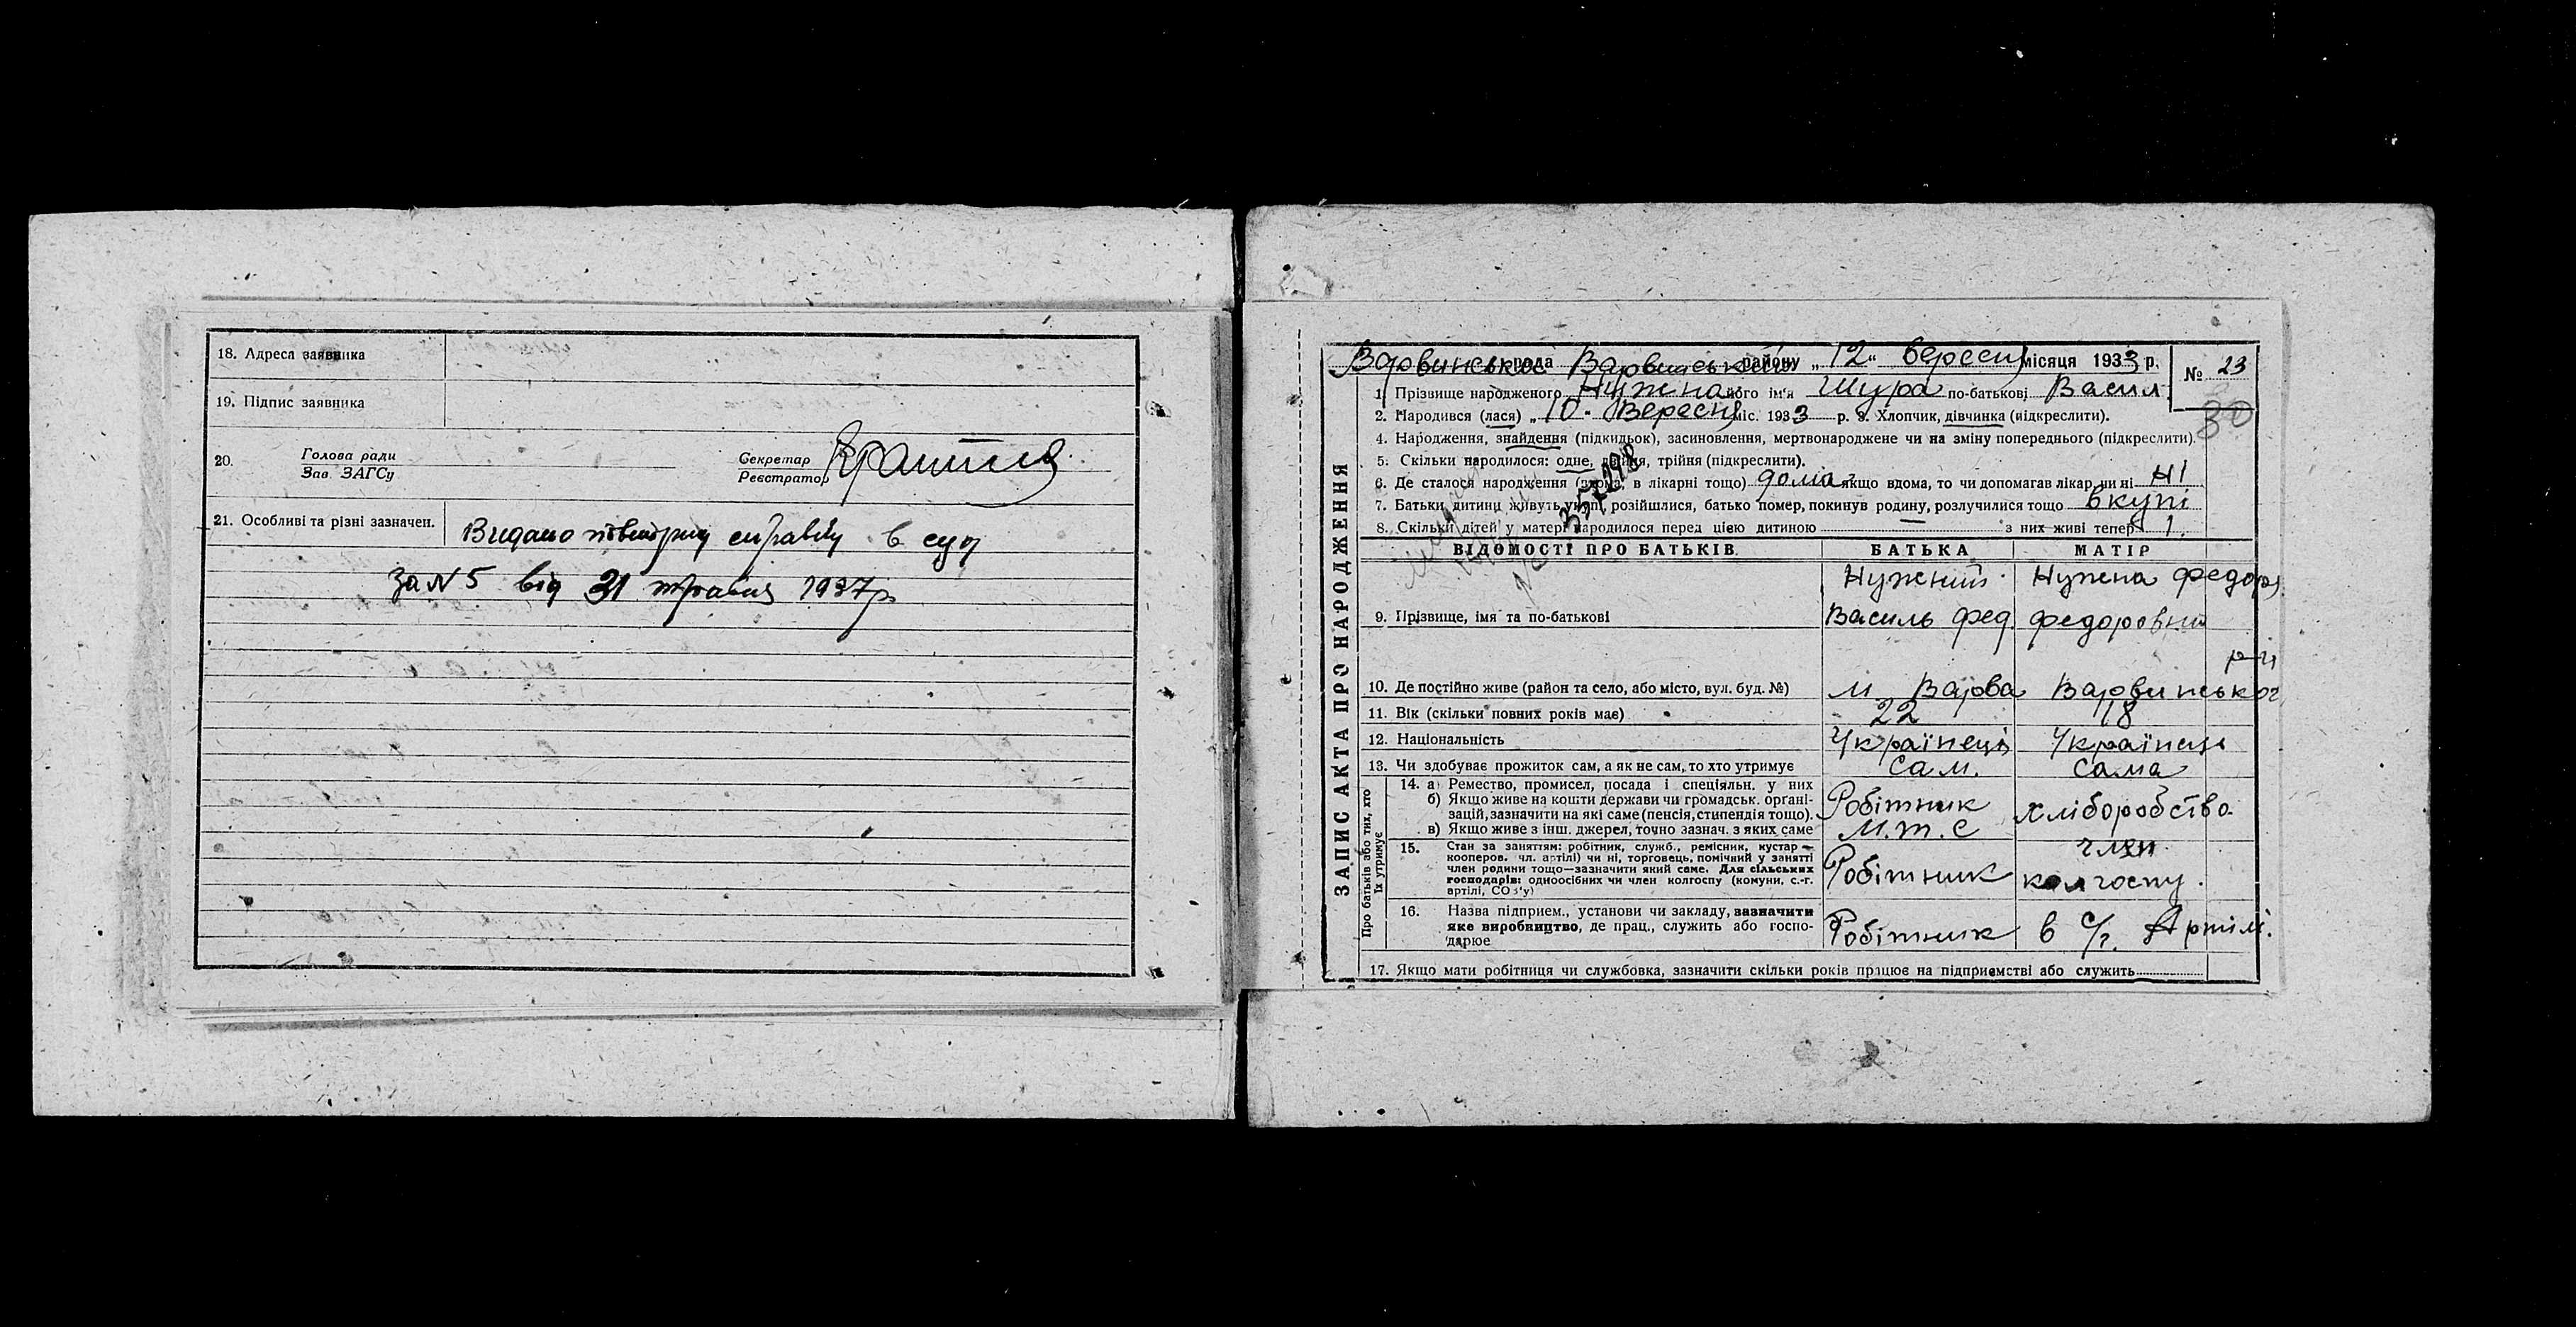 18. Адреса заявника
19. Підпис заявника
20. Голова ради
Зав. ЗАГСу
Секретар
Реєстратор
21. Особливі та різні зазначен. Видано повторну справку в суд
За № 5 від 31 травня 1937 р.
ЗАПИС АКТА ПРО НАРОДЖЕННЯ
Варвинська рада Варвинського району „12" вересня місяця 1933 р. № 23
1. Прізвище народженого Нужна його ім'я Шура по-батькові Васил.
30
2. Народився (лася) „10" Вересня міс. 1933 р. 3. Хлопчик, дівчинка (підкреслити).
4. Народження, знайдення (підкидьок), засиновлення, мертвонароджене чи на зміну попереднього (підкреслити).
5. Скільки народилося: одне, двійня, трійня (підкреслити).
6. Де сталося народження (вдома, в лікарні тощо) дома якщо вдома, то чи допомагав лікар чи ні Ні
7. Батьки дитини живуть укупі, розійшлися, батько помер, покинув родину, розлучилися тощо вкупі
8. Скільки дітей у матері народилося перед цією дитиною — з них живі тепер 1.
№ 357298
ВІДОМОСТІ ПРО БАТЬКІВ БАТЬКА МАТІР
Нужний Нужна Федора
9. Прізвище, імя та по-батькові Василь Фед. Федоровна
р-н
10. Де постійно живе (район та село, або місто, вул. буд. №) м. Варва Варвинськог
11. Вік (скільки повних років має) 22 18
12. Національність Українець Українець
13. Чи здобуває прожиток сам, а як не сам, то хто утримує сам. сама
Про батьків або тих, хто їх утримує
14. а) Ремество, промисел, посада і спеціяльн. у них
б) Якщо живе на кошти держави чи громадськ. органі-
зацій, зазначити на які саме (пенсія, стипендія тощо). Робітник хліборобство
в) Якщо живе з інш. джерел, точно зазнач. з яких саме М.т.с
15. Стан за заняттям: робітник, служб., ремісник, кустар—
кооперов. чл. артілі) чи ні, торговець, помічний у занятті член
член родини тощо—зазначити який саме. Для сільських Робітник колгоспу.
господарів: одноосібних чи член колгоспу (комуни, с.-г.
артілі, СОЗ'у)
16. Назва підприєм., установи чи закладу, зазначити
яке виробництво, де прац., служить або госпо- Робітник в с/г. Артілі.
дарює
17. Якщо мати робітниця чи службовка, зазначити скільки років працює на підприємстві або служить